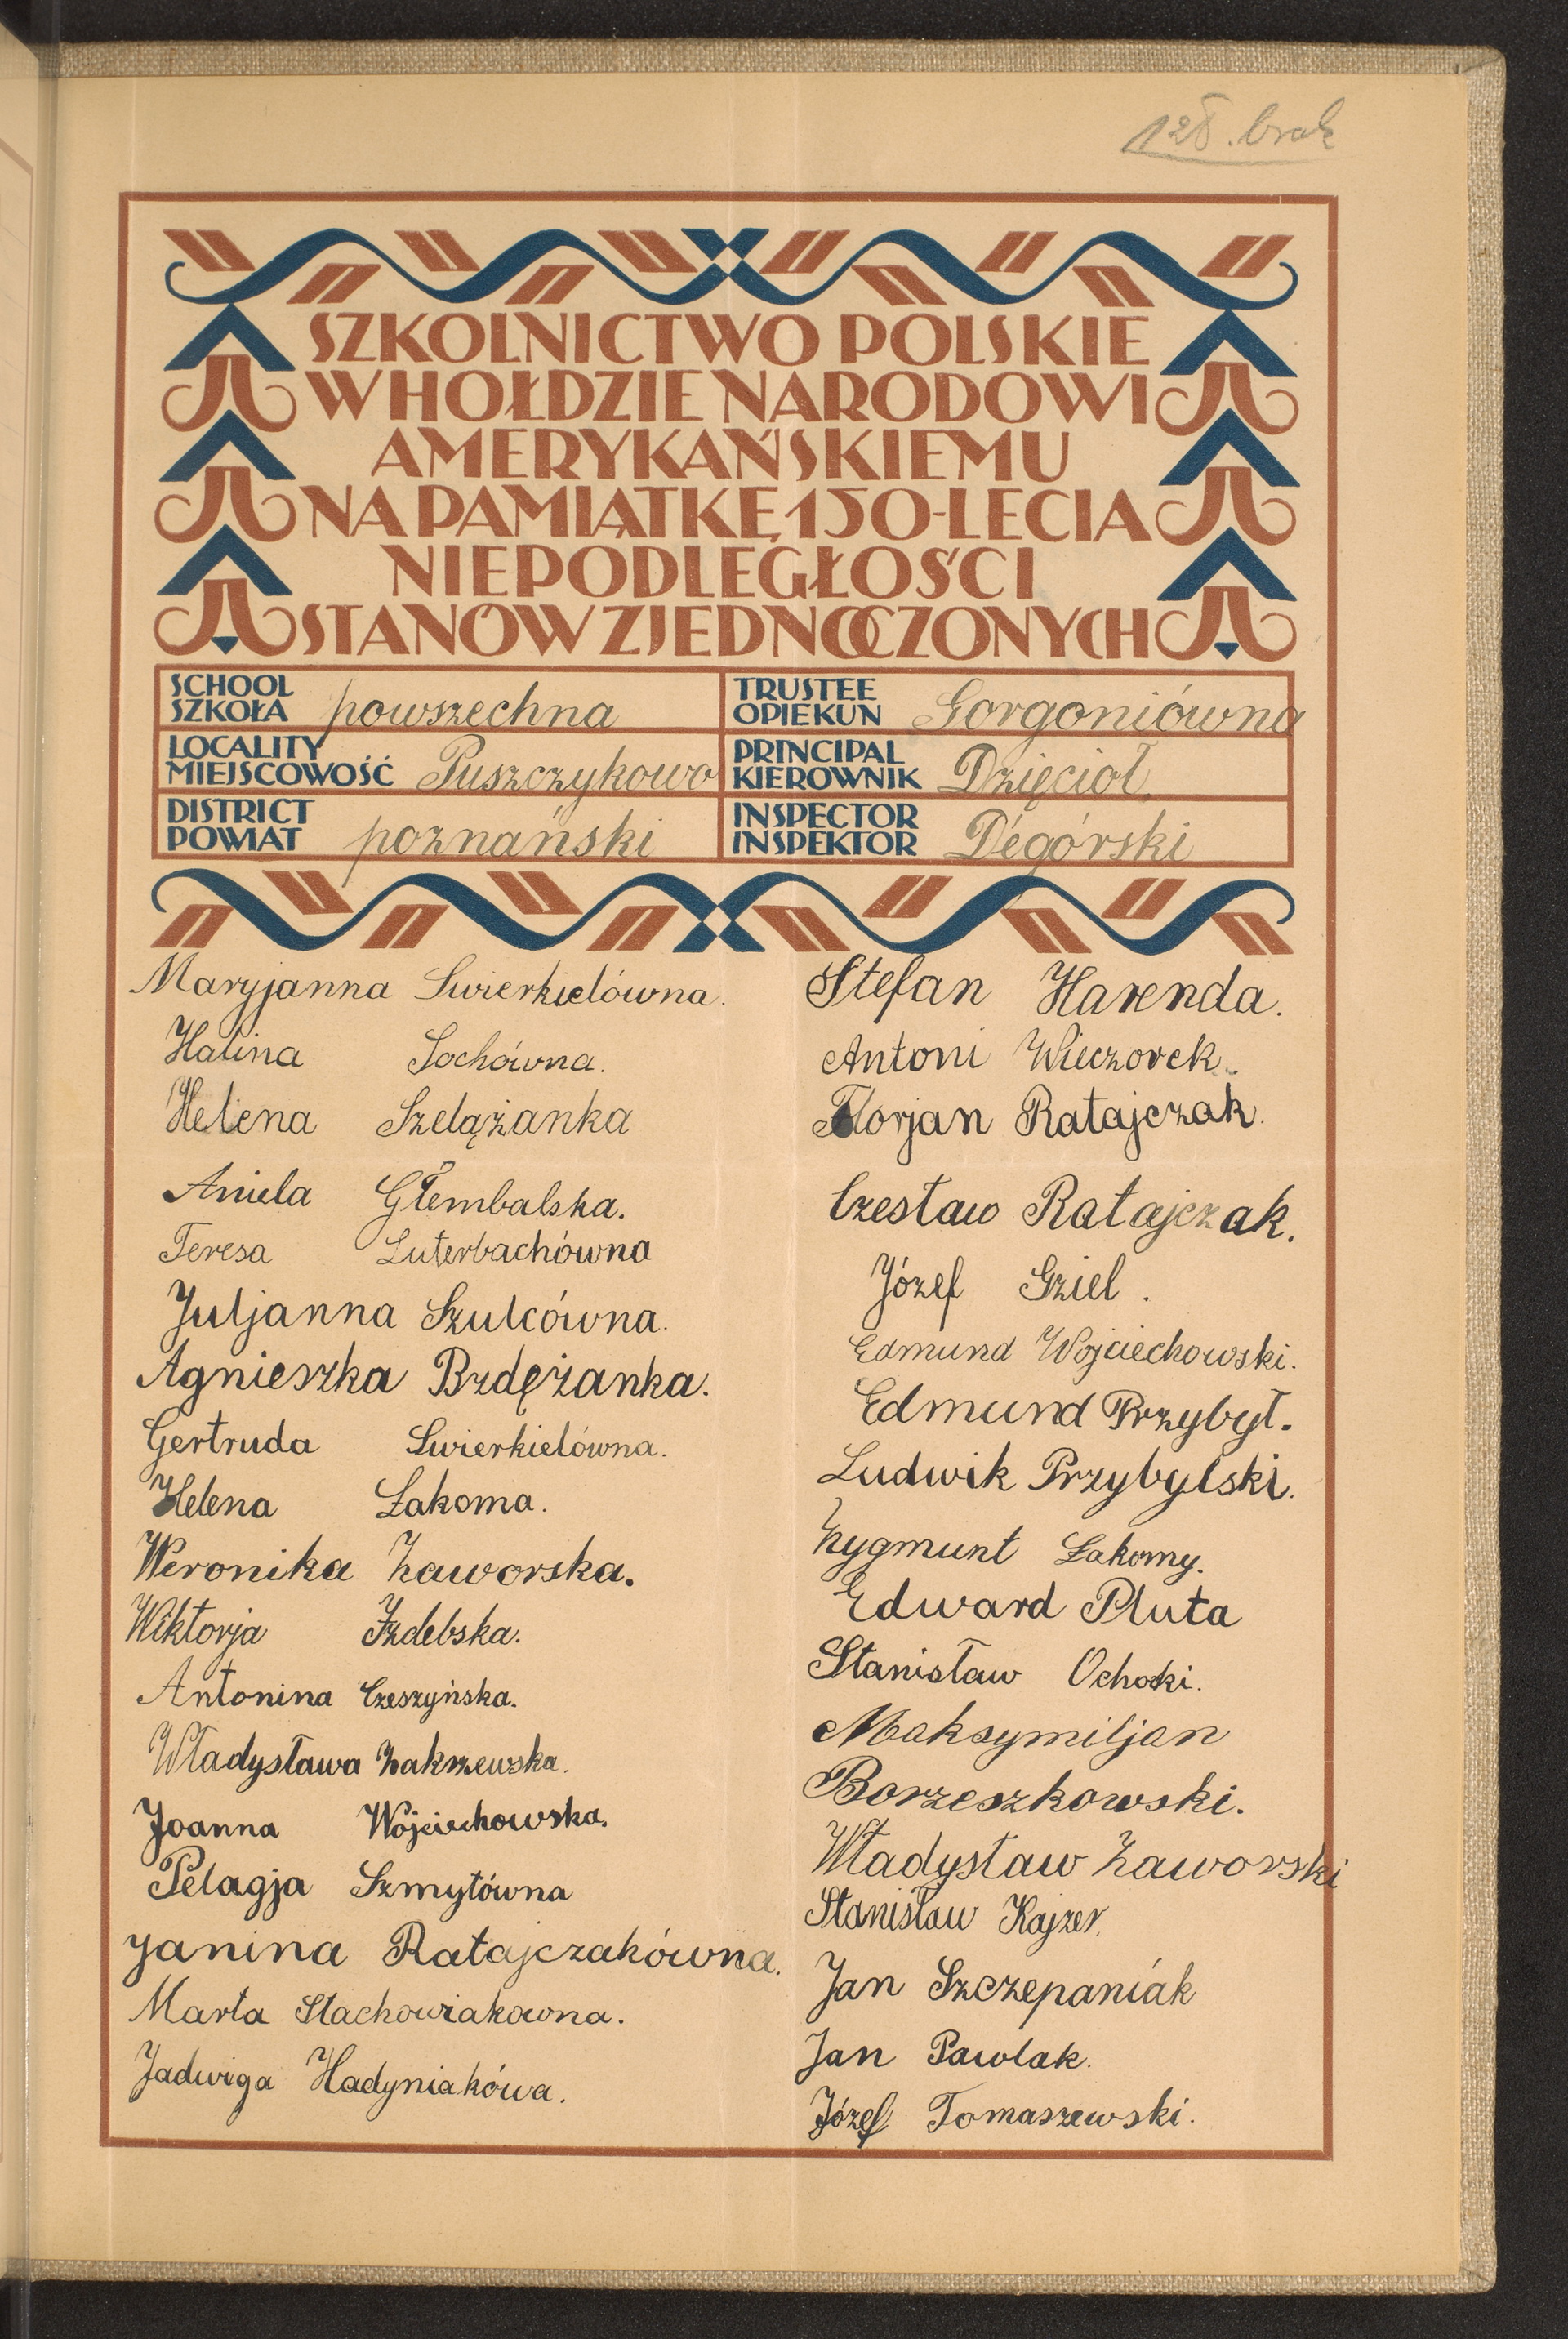 128. brak
SZKOLNICTWO POLSKIE
W HOŁDZIE NARODOWI
AMERYKAŃSKIEMU
NA PAMIĄTKĘ 150-LECIA
NIEPODLEGŁOŚCI
STANÓW ZJEDNOCZONYCH
SCHOOL
SZKOŁA powszechna
TRUSTEE
OPIEKUN Gorgoniówna
LOCALITY
MIEJSCOWOŚĆ Puszczykowo
PRINCIPAL
KIEROWNIK Dzięcioł
DISTRICT
POWIAT poznański
INSPECTOR
INSPEKTOR Dégórski
Maryjanna Swierkielówna.
Halina Sochówna.
Helena Szelążanka
Aniela Głembalska.
Teresa Luterbachówna
Juljanna Szulcówna.
Agnieszka Brdężanka.
Gertruda Swierkielówna.
Helena Łakoma.
Weronika Zaworska.
Wiktorja Izdebska.
Antonina Czeszyńska.
Władysława Zakrzewska.
Joanna Wojciechowska.
Pelagja Szmytówna
Janina Ratajczakówna.
Marta Stachowiakowna.
Jadwiga Hadyniakówa.
Stefan Harenda.
Antoni Wieczorek.
Florjan Ratajczak.
Czesław Ratajczak.
Józef Gziel.
Edmund Wojciechowski.
Edmund Przybył.
Ludwik Przybylski.
Zygmunt Łakomy.
Edward Pluta
Stanisław Ochocki.
Maksymiljan
Borzeszkowski.
Władysław Zaworski
Stanisław Kajzer.
Jan Szczepaniak
Jan Pawlak.
Józef Tomaszewski.